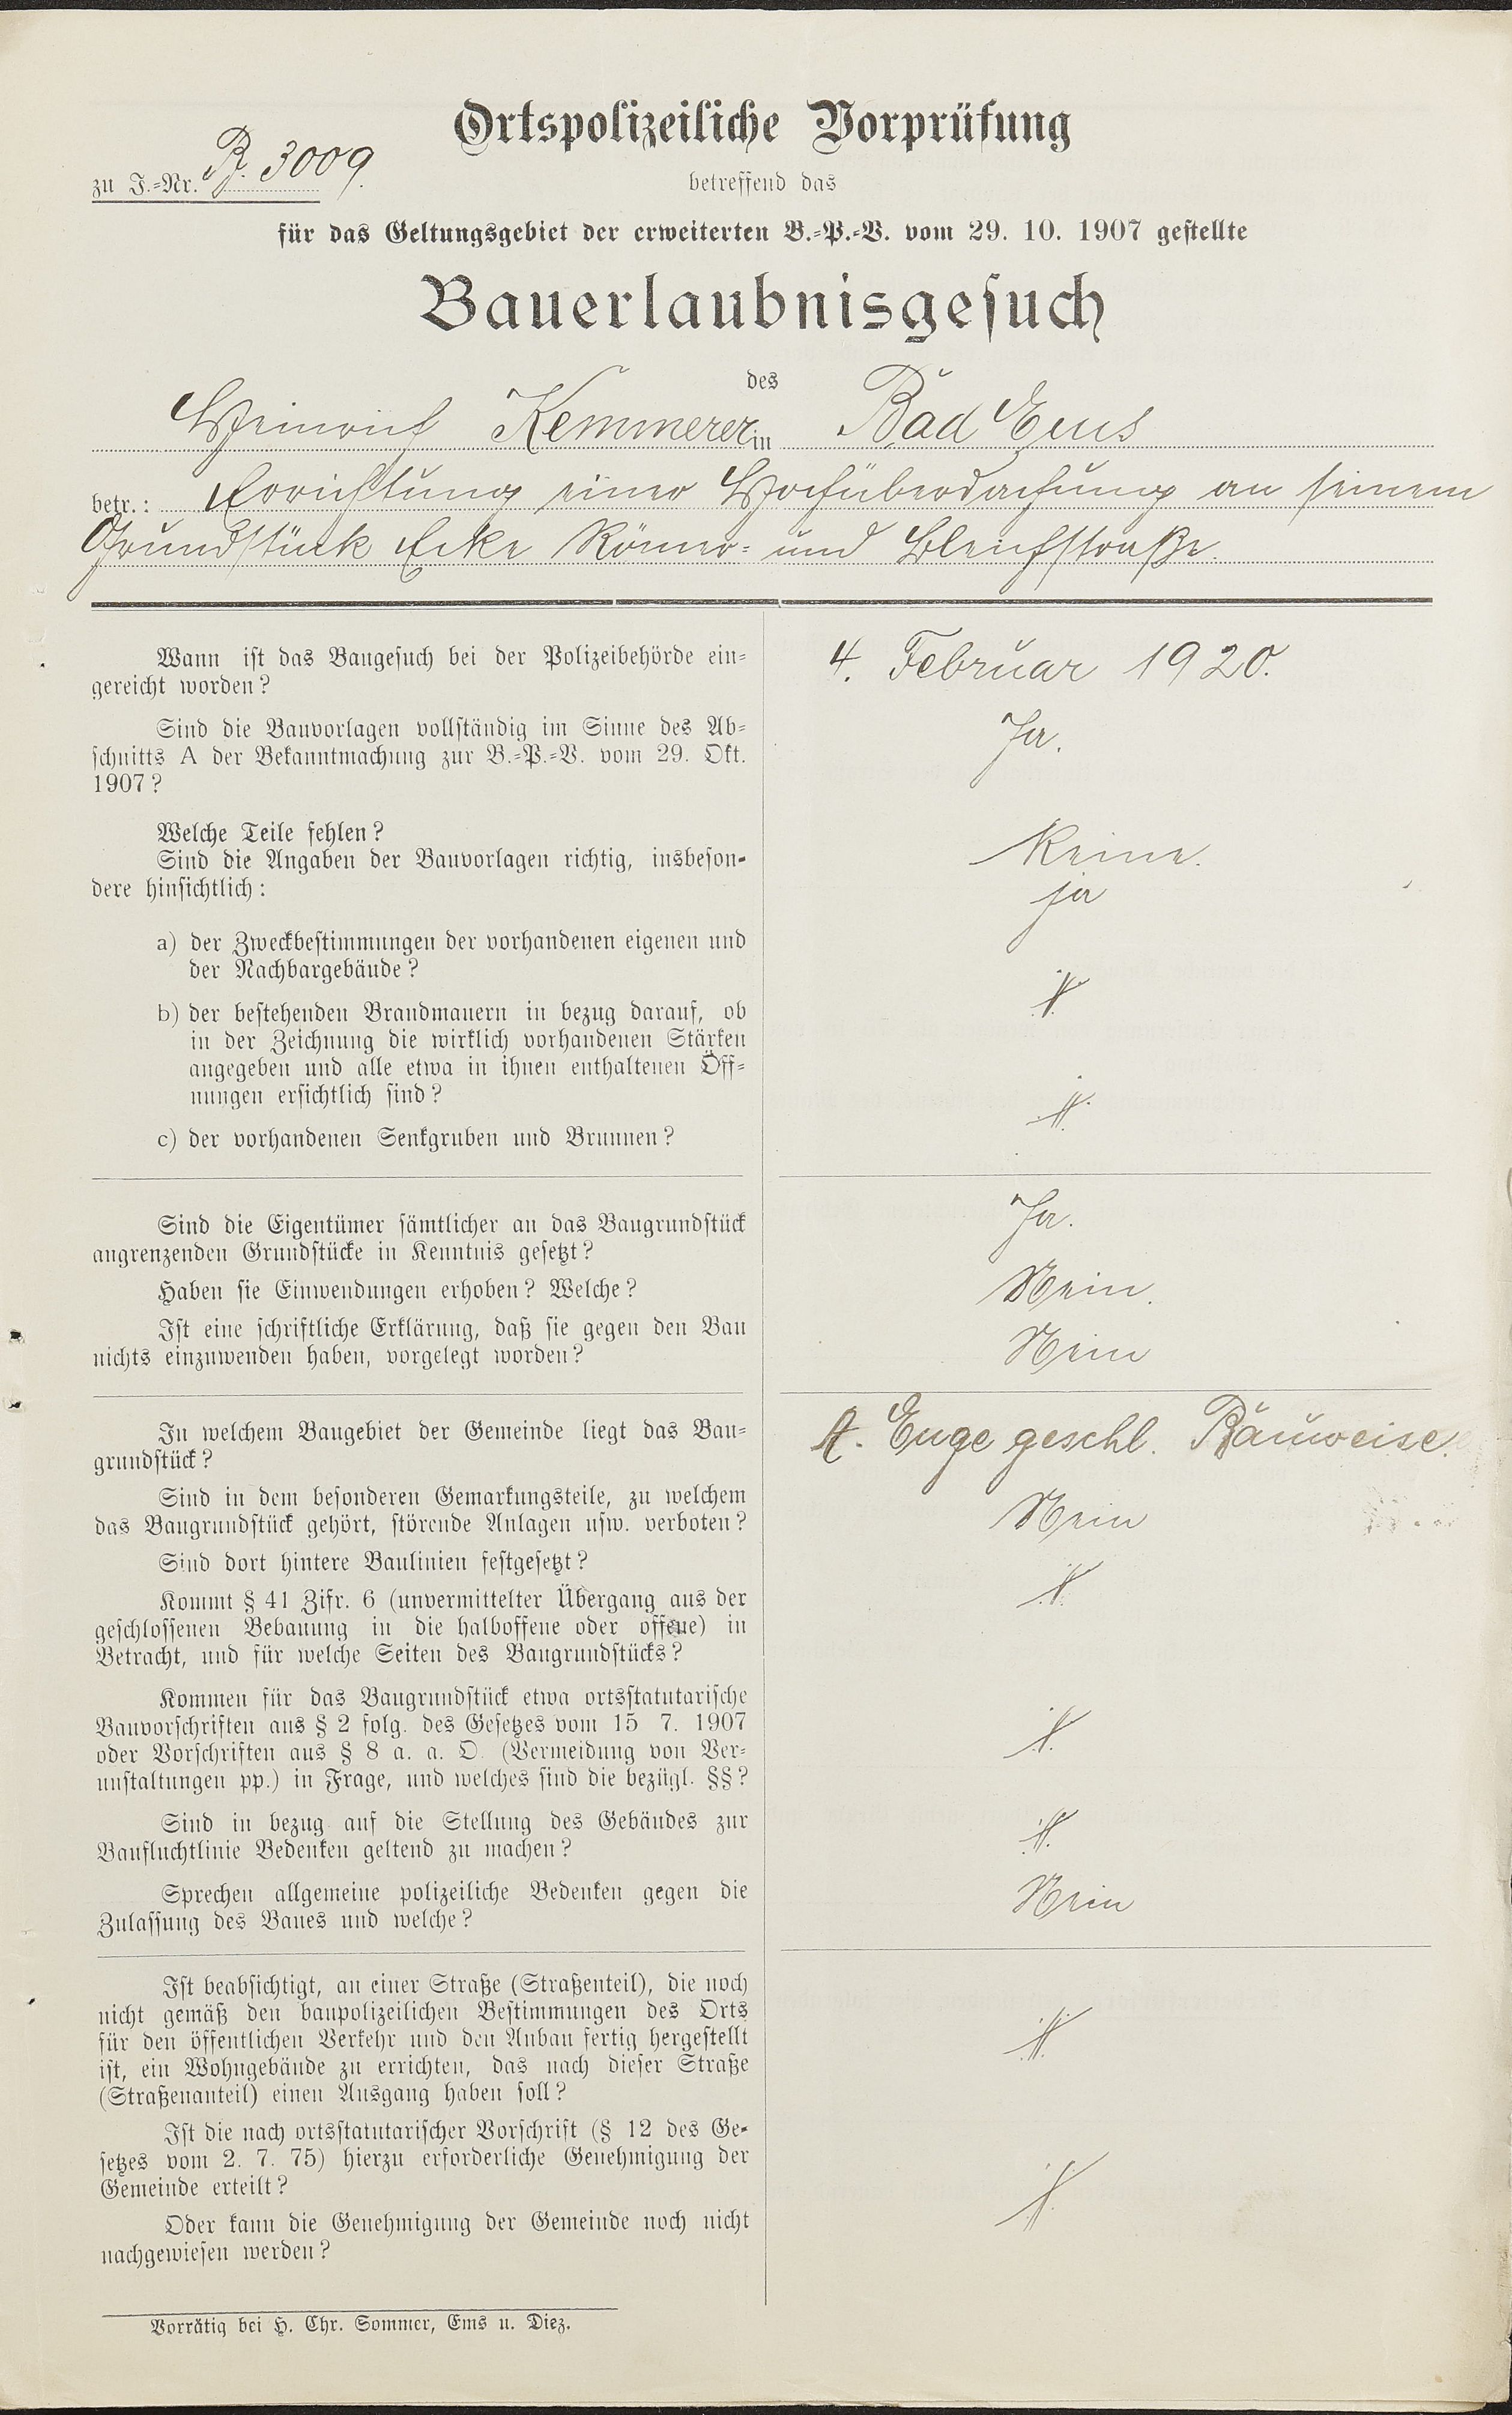 Ortspolizeiliche Vorprüfung
zu J.-Nr. B. 3009.
betreffend das
für das Geltungsgebiet der erweiterten B.-P.-V. vom 29. 10. 1907 gestellte
Bauerlaubnisgesuch
des
Heinrich Kemmerer in Bad Ems
betr.: Errichtung einer Hofüberdachung an seinem
Grundstück Ecke Römer- und Bleichstraße.
Wann ist das Baugesuch bei der Polizeibehörde ein-
gereicht worden?
4. Februar 1920.
Sind die Bauvorlagen vollständig im Sinne des Ab-
schnitts A der Bekanntmachung zur B.-P.-V. vom 29. Okt.
1907?
Ja.
Welche Teile fehlen?
Keine.
Sind die Angaben der Bauvorlagen richtig, insbeson-
dere hinsichtlich:
ja
a) der Zweckbestimmungen der vorhandenen eigenen und
der Nachbargebäude?
b) der bestehenden Brandmauern in bezug darauf, ob
in der Zeichnung die wirklich vorhandenen Stärken
angegeben und alle etwa in ihnen enthaltenen Öff-
nungen ersichtlich sind?
c) der vorhandenen Senkgruben und Brunnen?
Sind die Eigentümer sämtlicher an das Baugrundstück
angrenzenden Grundstücke in Kenntnis gesetzt?
Ja.
Haben sie Einwendungen erhoben? Welche?
Nein.
Ist eine schriftliche Erklärung, daß sie gegen den Bau
nichts einzuwenden haben, vorgelegt worden?
Nein
In welchem Baugebiet der Gemeinde liegt das Bau-
grundstück?
A. Enge geschl. Bauweise.
Sind in dem besonderen Gemarkungsteile, zu welchem
das Baugrundstück gehört, störende Anlagen usw. verboten?
Nein
Sind dort hintere Baulinien festgesetzt?
Kommt § 41 Zifr. 6 (unvermittelter Übergang aus der
geschlossenen Bebauung in die halboffene oder offene) in
Betracht, und für welche Seiten des Baugrundstücks?
Kommen für das Baugrundstück etwa ortsstatutarische
Bauvorschriften aus § 2 folg. des Gesetzes vom 15 7. 1907
oder Vorschriften aus § 8 a. a. O. (Vermeidung von Ver-
unstaltungen pp.) in Frage, und welches sind die bezügl. §§?
Sind in bezug auf die Stellung des Gebäudes zur
Baufluchtlinie Bedenken geltend zu machen?
Sprechen allgemeine polizeiliche Bedenken gegen die
Zulassung des Baues und welche?
Nein
Ist beabsichtigt, an einer Straße (Straßenteil), die noch
nicht gemäß den baupolizeilichen Bestimmungen des Orts
für den öffentlichen Verkehr und den Anbau fertig hergestellt
ist, ein Wohngebäude zu errichten, das nach dieser Straße
(Straßenanteil) einen Ausgang haben soll?
Ist die nach ortsstatutarischer Vorschrift (§ 12 des Ge-
setzes vom 2. 7. 75) hierzu erforderliche Genehmigung der
Gemeinde erteilt?
Oder kann die Genehmigung der Gemeinde noch nicht
nachgewiesen werden?
Vorrätig bei H. Chr. Sommer, Ems u. Diez.